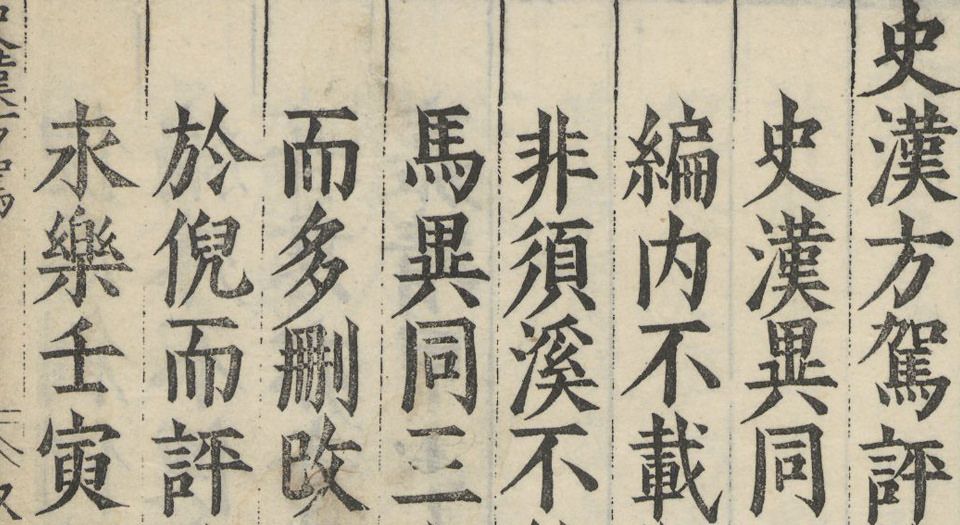 史漢方駕評
史漢異同
編内不載
非須溪不
馬異同三
而多刪改
於倪而評
永樂壬寅